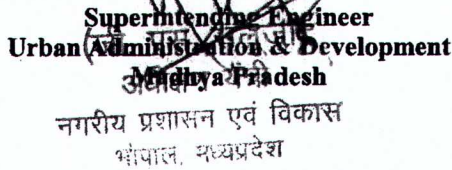 Superintending Engineer
Urban Administration & Development
Madhya Pradesh
नगरीय प्रशासन एवं विकास
भोपाल, मध्यप्रदेश